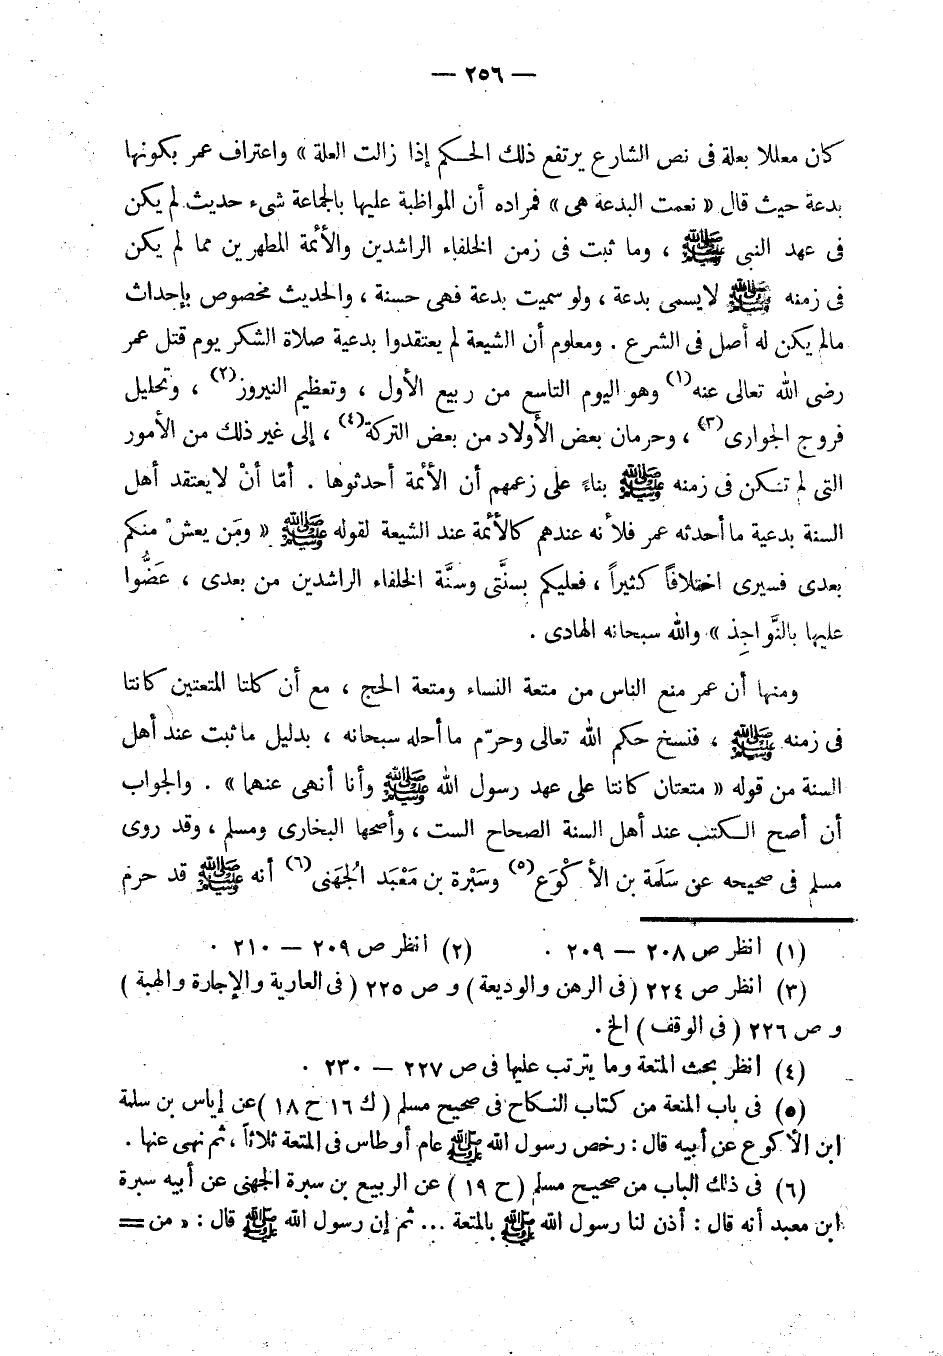 — ٢٥٦ —
كان معللا بعلة فى نص الشارع يرتفع ذلك الحكم إذا زالت العلة » واعتراف عمر بكونها
بدعة حيث قال « نعمت البدعة هى » فمراده أن المواظبة عليها بالجماعة شىء حديث لم يكن
فى عهد النبى ﷺ ، وما ثبت فى زمن الخلفاء الراشدين والأئمة المطهرين مما لم يكن
فى زمنه ﷺ لايسمى بدعة ، ولو سميت بدعة فهى حسنة ، والحديث مخصوص بإحداث
مالم يكن له أصل فى الشرع . ومعلوم أن الشيعة لم يعتقدوا بدعية صلاة الشكر يوم قتل عمر
رضى الله تعالى عنه(١) وهو اليوم التاسع من ربيع الأول ، وتعظيم النيروز(٢) ، وتحليل
فروج الجوارى(٣) ، وحرمان بعض الأولاد من بعض التركة(٤) ، إلى غير ذلك من الأمور
التى لم تكن فى زمنه ﷺ بناءً على زعمهم أن الأئمة أحدثوها . أمّا أنْ لايعتقد أهل
السنة بدعية ما أحدثه عمر فلأنه عندهم كالأئمة عند الشيعة لقوله ﷺ « ومَن يعشْ منكم
بعدى فسيرى اختلافاً كثيراً ، فعليكم بسنَّتى وسنَّة الخلفاء الراشدين من بعدى ، عَضُّوا
عليها بالنَّواجِذ » والله سبحانه الهادى .
ومنها أن عمر منع الناس من متعة النساء ومتعة الحج ، مع أن كلتا المتعتين كانتا
فى زمنه ﷺ ، فنسخ حكم الله تعالى وحرّم ما أحله سبحانه ، بدليل ما ثبت عند أهل
السنة من قوله « متعتان كانتا على عهد رسول الله ﷺ وأنا أنهى عنهما » . والجواب
أن أصح الكتب عند أهل السنة الصحاح الست ، وأصحها البخارى ومسلم ، وقد روى
مسلم فى صحيحه عن سَلَمة بن الأكْوَع(٥) وسَبْرة بن مَعْبَد الجُهَنى(٦) أنه ﷺ قد حرم
(١) انظر ص ٢٠٨ — ٢٠٩ . (٢) انظر ص ٢٠٩ — ٢١٠ .
(٣) انظر ص ٢٢٤ ( فى الرهن والوديعة ) و ص ٢٢٥ ( فى العارية والإجارة والهبة )
و ص ٢٢٦ ( فى الوقف ) الخ .
(٤) انظر بحث المتعة وما يترتب عليها فى ص ٢٢٧ — ٢٣٠ .
(٥) فى باب المتعة من كتاب النكاح فى صحيح مسلم ( ك ١٦ ح ١٨ ) عن إياس بن سلمة
ابن الأكوع عن أبيه قال : رخص رسول الله ﷺ عام أوطاس فى المتعة ثلاثاً ، ثم نهى عنها .
(٦) فى ذلك الباب من صحيح مسلم ( ح ١٩ ) عن الربيع بن سبرة الجهنى عن أبيه سبرة
ابن معبد أنه قال : أذن لنا رسول الله ﷺ بالمتعة ... ثم إن رسول الله ﷺ قال : « من ==